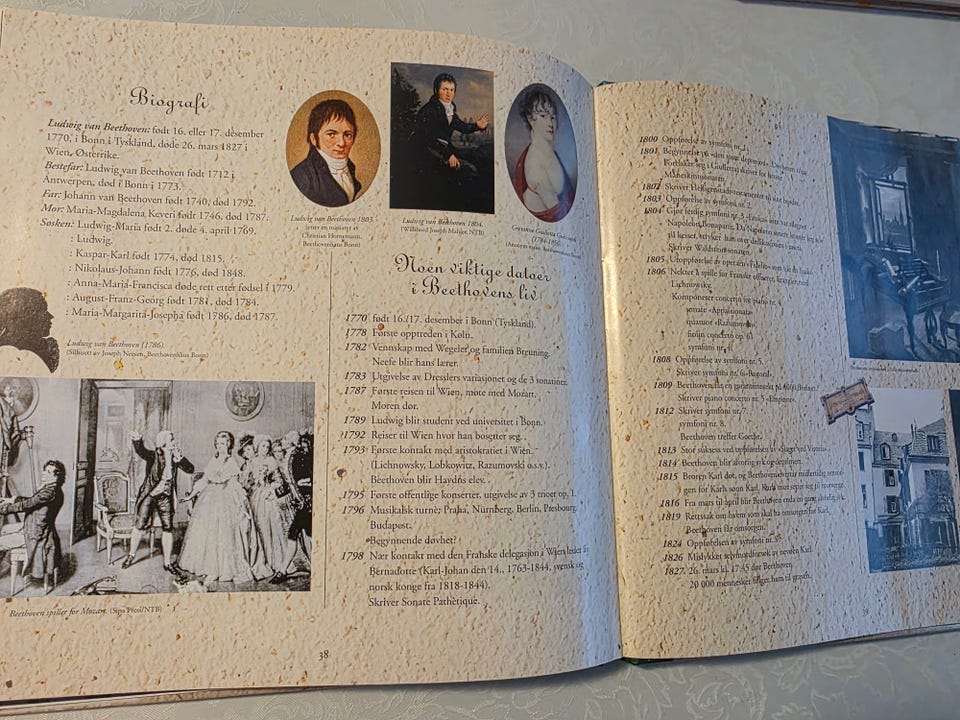 Biografi
Ludwig van Beethoven: født 16. eller 17. desember
1770, i Bonn i Tyskland, døde 26. mars 1827 i
Wien, Østerrike.
Bestefar: Ludwig van Beethoven født 1712 i
Antwerpen, død i Bonn i 1773.
Far: Johann van Beethoven født 1740, død 1792.
Mor: Maria-Magdalena Keveri født 1746, død 1787.
Søsken: Ludwig-Maria født 2. døde 4. april 1769.
: Ludwig.
: Kaspar-Karl født 1774, død 1815.
: Nikolaus-Johann født 1776, død 1848.
: Anna-Maria-Francisca døde rett etter fødsel i 1779.
: August-Franz-Georg født 1781, død 1784.
: Maria-Margarita-Josepha født 1786, død 1787.
Ludwig van Beethoven (1786).
(Silhuett av Joseph Neesen, Beethovenhaus Bonn)
Beethoven spiller for Mozart. (Sipa Press/NTB)
Ludwig van Beethoven 1803.
Christian Hornemann,
Beethovenhaus Bonn)
Ludwig van Beethoven 1804.
(Willibrord Joseph Mahler, NTB)
(1784-1856).
Noen viktige datoer
i Beethovens liv
1770 født 16./17. desember i Bonn (Tyskland).
1778 Første opptreden i Køln.
1782 Vennskap med Wegeler og familien Breuning.
Neefe blir hans lærer.
1783 Utgivelse av Dresslers variasjoner og de 3 sonatiner.
1787 Første reisen til Wien, møte med Mozart.
Moren dør.
1789 Ludwig blir student ved universitet i Bonn.
1792 Reiser til Wien hvor han bosetter seg.
1793 Første kontakt med aristokratiet i Wien.
(Lichnowsky, Lobkowitz, Razumovski o.s.v.).
Beethoven blir Haydns elev.
1795 Første offentlige konserter, utgivelse av 3 trioer op. 1.
1796 Musikalsk turnè: Praha, Nürnberg, Berlin, Presbourg,
Budapest.
Begynnende døvhet?
1798 Nær kontakt med den Franske delegasjon i Wien ledet
Bernadotte (Karl-Johan den 14., 1763-1844, svensk og
norsk konge fra 1818-1844).
Skriver Sonate Pathètique.
38
1800 Oppførelse av symfoni nr. 1.
1801
Måneskinnsonaten.
1802 Skriver Heiligenstadt-testamentet til sine brødre.
1803 Oppførelse av symfoni nr. 2.
1804 Gjør ferdig symfoni nr. 3
Skriver Waldsteinsonaten.
1805 Uroppførelse av operaen Fidelio
1806 Nekter å spille for Franske offiserer, krangler med
Lichnowsky,
Komponerer concerto for piano nr. 4
sonate «Appassionata»
quatuor «Razumovski»
fiolin concerto op. 61
symfoni nr.
1808 Oppførelse av symfoni nr. 5.
Skriver symfoni nr. 6
1809
Skriver piano concerto nr. 5 «Emperor»
1812 Skriver symfoni nr. 7.
symfoni nr. 8.
Beethoven treffer Goethe.
1813 Stor suksess ved oppførelsen av
1814 Beethoven blir alvorlig syk og deprimert.
1815 Broren Karl dør, og Beethoven
1816 Fra mars til april blir Beethoven
1819 Rettssak om hvem som skal ha omsorgen for Karl,
Beethoven får omsorgen.
1824 Oppførelsen av symfoni nr. 9.
1826 Mislykket selvmordforsøk av nevøen Karl
1827. 26. mars kl. 17.45 dør Beethoven.
20 000 mennesker følger ham til graven.